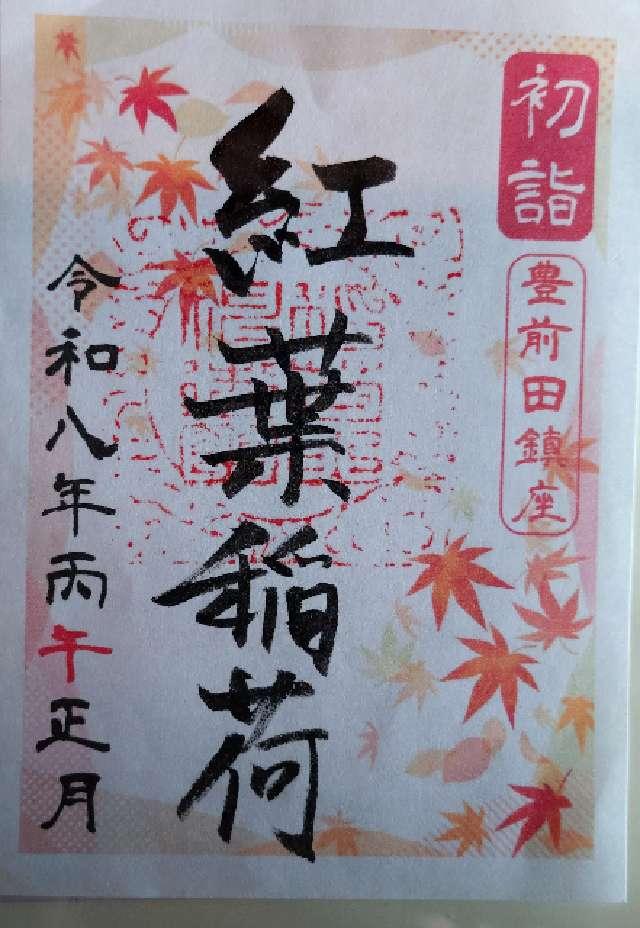 初詣
豊前田鎮座
紅葉稲荷
令和八年丙午正月